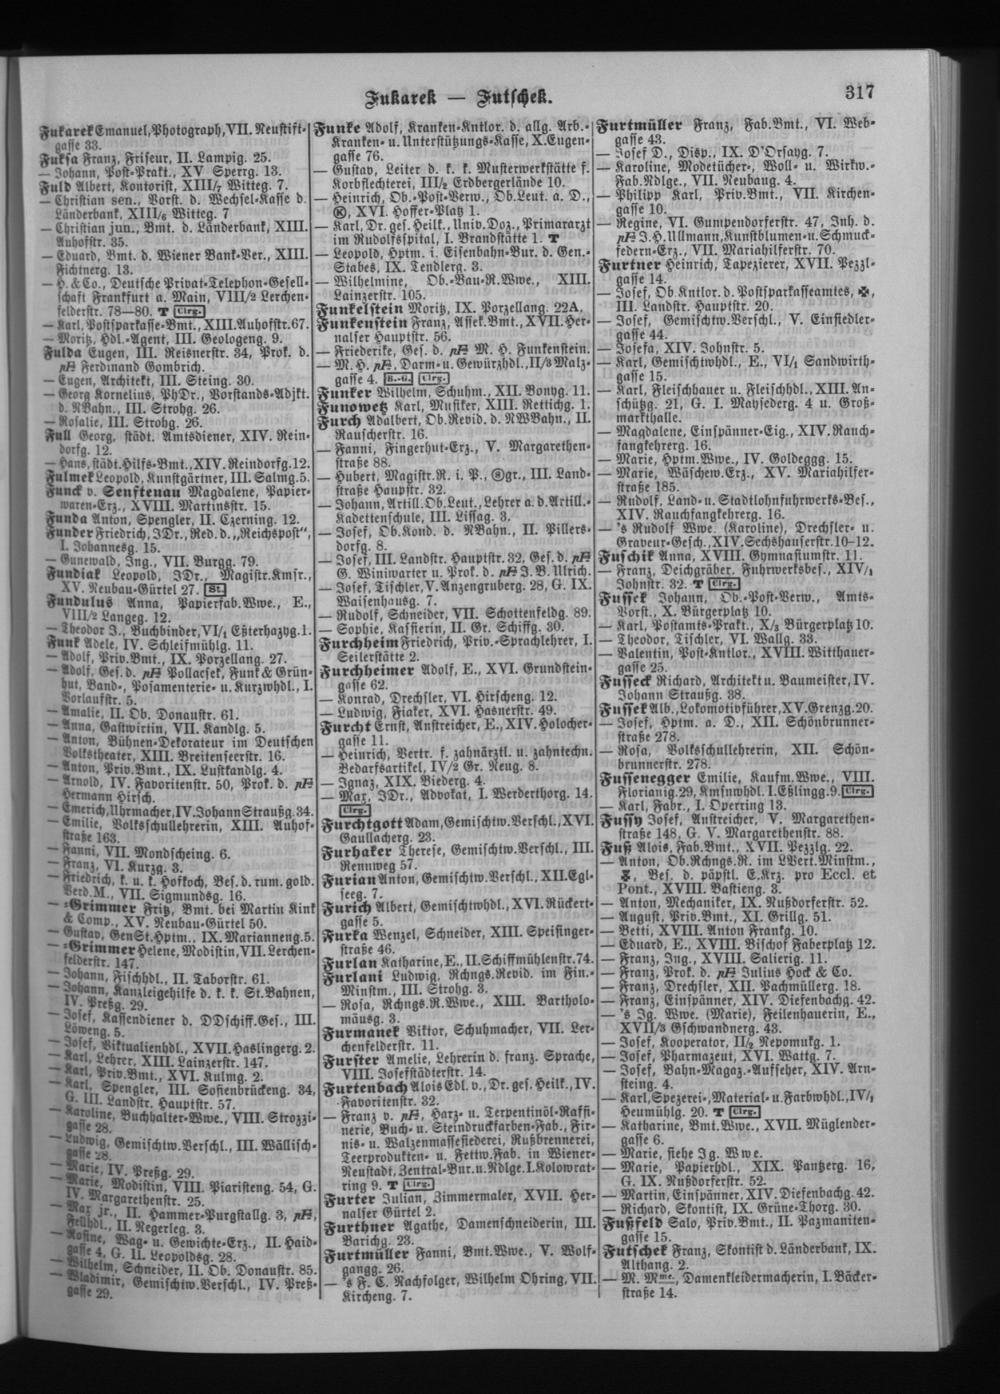 Fukarek — Futschek.
317
Fukarek Emanuel, Photograph, VII. Neustift-
gasse 33.
Fuksa Franz, Friseur, II. Lampig. 25.
— Johann, Post-Prakt., XV Sperrg. 13.
Fuld Albert, Kontorist, XIII/7 Witteg. 7.
— Christian sen., Vorst. d. Wechsel-Kasse d.
Länderbank, XIII/6 Witteg. 7
— Christian jun., Bmt. d. Länderbank, XIII.
Auhofstr. 35.
— Eduard, Bmt. d. Wiener Bank-Ver., XIII.
Fichtnerg. 13.
— H. & Co., Deutsche Privat-Telephon-Gesell-
schaft Frankfurt a. Main, VIII/2 Lerchen-
felderstr. 78—80. T Clrg.
— Karl, Postsparkasse-Bmt., XIII. Auhofstr. 67.
— Moritz, Hdl.-Agent, III. Geologeng. 9.
Fulda Eugen, III. Reisnerstr. 34, Prok. d.
Ferdinand Gombrich.
— Eugen, Architekt, III. Steing. 30.
— Georg Kornelius, PhDr., Vorstands-Adjkt.
d. NBahn., III. Strohg. 26.
— Rosalie, III. Strohg. 26.
Full Georg, städt. Amtsdiener, XIV. Rein-
dorfg. 12.
— Hans, städt. Hilfs-Bmt., XIV. Reindorfg. 12.
Fulmek Leopold, Kunstgärtner, III. Salmg. 5.
Funck v. Senftenau Magdalene, Papier-
waren-Erz., XVIII. Martinsstr. 15.
Funda Anton, Spengler, II. Czerning. 12.
Funder Friedrich, JDr., Red. d. „Reichspost",
I. Johannesg. 15.
— Gunewald, Ing., VII. Burgg. 79.
Fundiak Leopold, JDr., Magistr. Kmsr.,
XV. Neubau-Gürtel 27. St.
Fundulus Anna, Papierfab. Wwe., E.,
VIII/2 Langeg. 12.
— Theodor J., Buchbinder, VI/1 Eßterhazyg. 1.
Funk Adele, IV. Schleifmühlg. 11.
— Adolf, Priv. Bmt., IX. Porzellang. 27.
— Adolf, Ges. d. Pollacsek, Funk & Grün-
hut, Band-, Posamenterie- u. Kurzwhdl., I.
Vorlaufstr. 5.
— Amalie, II. Ob. Donaustr. 61.
— Anna, Gastwirtin, VII. Kandlg. 5.
— Anton, Bühnen-Dekorateur im Deutschen
Volkstheater, XIII. Breitenseerstr. 16.
— Anton, Priv. Bmt., IX. Lustkandlg. 4.
— Arnold, IV. Favoritenstr. 50, Prok. d.
Hermann Hirsch.
— Emerich, Uhrmacher, IV. Johann Straußg. 34.
— Emilie, Volksschullehrerin, XIII. Auhof-
straße 163.
— Fanni, VII. Mondscheing. 6.
— Franz, VI. Kurzg. 3.
— Friedrich, k. u. k. Hofkoch, Bes. d. rum. gold.
Verd. M., VII. Sigmundsg. 16.
— -Grimmer Fritz, Bmt. bei Martin Kink
& Comp., XV. Neubau-Gürtel 50.
— Gustav, GenSt. Hptm., IX. Marianneng. 5.
— -Grimmer Helene, Modistin, VII. Lerchen-
felderstr. 147.
— Johann, Fischhdl., II. Taborstr. 61.
— Johann, Kanzleigehilfe d. k. k. St. Bahnen,
IV. Preßg. 29.
— Josef, Kassendiener d. DDschiff. Ges., III.
Löweng. 5.
— Josef, Viktualienhdl., XVII. Haslingerg. 2.
— Karl, Lehrer, XIII. Lainzerstr. 147.
— Karl, Priv. Bmt., XVI. Kulmg. 2.
— Karl, Spengler, III. Sofienbrückeng. 34,
G. III. Landstr. Hauptstr. 57.
— Karoline, Buchhalter-Wwe., VIII. Strozzi-
gasse 28.
— Ludwig, Gemischtw. Verschl., III. Wällisch-
gasse 28.
— Marie, IV. Preßg. 29.
— Marie, Modistin, VIII. Piaristeng. 54, G.
IV. Margarethenstr. 25.
— Max jr., II. Hammer-Purgstallg. 3,
Fellhdl., II. Negerleg. 3.
— Rosine, Wag- u. Gewichte-Erz., II. Haid-
gasse 4, G. II. Leopoldsg. 28.
— Wilhelm, Schneider, II. Ob. Donaustr. 85.
— Wladimir, Gemischtw. Verschl., IV. Preß-
gasse 29.
Funke Adolf, Kranken-Kntlor. d. allg. Arb.-
Kranken- u. Unterstützungs-Kasse, X. Eugen-
gasse 76.
— Gustav, Leiter d. k. k. Musterwerkstätte f.
Korbflechterei, III/2 Erdbergerlände 10.
— Heinrich, Ob.-Post-Verw., Ob. Leut. a. D.,
XVI. Hoffer-Platz 1.
— Karl, Dr. ges. Heilk., Univ. Doz., Primararzt
im Rudolfsspital, I. Brandstätte 1. T
— Leopold, Hptm. i. Eisenbahn-Bur. d. Gen.-
Stabes, IX. Tendlerg. 3.
— Wilhelmine, Ob.-Bau-R. Wwe., XIII.
Lainzerstr. 105.
Funkelstein Moritz, IX. Porzellang. 22A.
Funkenstein Franz, Assek. Bmt., XVII. Her-
nalser Hauptstr. 56.
— Friederike, Ges. d. M. H. Funkenstein.
— M. H., Darm- u. Gewürzhdl., II/3 Malz-
gasse 4. B.-G. Clrg.
Funker Wilhelm, Schuhm., XII. Bonyg. 11.
Funowetz Karl, Musiker, XIII. Rettichg. 1.
Furch Adalbert, Ob. Revid. d. NWBahn., II.
Rauscherstr. 16.
— Fanni, Fingerhut-Erz., V. Margarethen-
straße 88.
— Hubert, Magistr. R. i. P., gr., III. Land-
straße Hauptstr. 32.
— Johann, Artill. Ob. Leut., Lehrer a. d. Artill.-
Kadettenschule, III. Lissag. 3.
— Josef, Ob. Kond. d. NBahn., II. Pillers-
dorfg. 8.
— Josef, III. Landstr. Hauptstr. 32, Ges. d.
G. Winiwarter u. Prok. d. J. B. Ulrich.
— Josef, Tischler, V. Anzengruberg. 28, G. IX.
Waisenhausg. 7.
— Rudolf, Schneider, VII. Schottenfeldg. 89.
— Sophie, Kassierin, II. Gr. Schiffg. 30.
Furchheim Friedrich, Priv.-Sprachlehrer, I.
Seilerstätte 2.
Furchheimer Adolf, E., XVI. Grundstein-
gasse 62.
— Konrad, Drechsler, VI. Hirscheng. 12.
— Ludwig, Fiaker, XVI. Hasnerstr. 49.
Furcht Ernst, Anstreicher, E., XIV. Holocher-
gasse 11.
— Heinrich, Vertr. f. zahnärztl. u. zahntechn.
Bedarfsartikel, IV/2 Gr. Neug. 8.
— Ignaz, XIX. Biederg. 4.
— Max, JDr., Advokat, I. Werderthorg. 14.
Clrg.
Furchtgott Adam, Gemischtw. Verschl., XVI.
Gaullacherg. 23.
Furhaker Therese, Gemischtw. Verschl., III.
Rennweg 57.
Furian Anton, Gemischtw. Verschl., XII. Egl-
seeg. 7.
Furich Albert, Gemischtwhdl., XVI. Rückert-
gasse 5.
Furka Wenzel, Schneider, XIII. Speisinger-
straße 46.
Furlan Katharine, E., II. Schiffmühlenstr. 74.
Furlani Ludwig, Rchngs. Revid. im Fin.-
Minstm., III. Strohg. 3.
— Rosa, Rchngs. R. Wwe., XIII. Bartholo-
mäusg. 3.
Furmanek Viktor, Schuhmacher, VII. Ler-
chenfelderstr. 11.
Furster Amelie, Lehrerin d. franz. Sprache,
VIII. Josefstädterstr. 14.
Furtenbach Alois Edl. v., Dr. ges. Heilk., IV.
Favoritenstr. 32.
— Franz v., Harz- u. Terpentinöl-Raffi-
nerie, Buch- u. Steindruckfarben-Fab., Fir-
nis- u. Walzenmassesiederei, Rußbrennerei,
Teerprodukten- u. Fettw. Fab. in Wiener-
Neustadt, Zentral-Bur. u. Ndlge. I. Kolowrat-
ring 9. T Clrg.
Furter Julian, Zimmermaler, XVII. Her-
nalser Gürtel 2.
Furthner Agathe, Damenschneiderin, III.
Barichg. 23.
Furtmüller Fanni, Bmt. Wwe., V. Wolf-
gangg. 26.
— 's F. C. Nachfolger, Wilhelm Ohring, VII.
Kircheng. 7.
Furtmüller Franz, Fab. Bmt., VI. Web-
gasse 43.
— Josef D., Disp., IX. D'Orsayg. 7.
— Karoline, Modetücher-, Woll- u. Wirkw.-
Fab. Ndlge., VII. Neubaug. 4.
— Philipp Karl, Priv. Bmt., VII. Kirchen-
gasse 10.
— Regine, VI. Gumpendorferstr. 47, Inh. d.
J. H. Ullmann, Kunstblumen- u. Schmuck-
federn-Erz., VII. Mariahilferstr. 70.
Furtner Heinrich, Tapezierer, XVII. Pezzl-
gasse 14.
— Josef, Ob. Kntlor. d. Postsparkasseamtes,
III. Landstr. Hauptstr. 20.
— Josef, Gemischtw. Verschl., V. Einsiedler-
gasse 44.
— Josefa, XIV. Johnstr. 5.
— Karl, Gemischtwhdl., E., VI/1 Sandwirth-
gasse 15.
— Karl, Fleischhauer u. Fleischhdl., XIII. An-
schützg. 21, G. I. Maysederg. 4 u. Groß-
markthalle.
— Magdalene, Einspänner-Eig., XIV. Rauch-
fangkehrerg. 16.
— Marie, Hptm. Wwe., IV. Goldeggg. 15.
— Marie, Wäschew. Erz., XV. Mariahilfer-
straße 185.
— Rudolf, Land- u. Stadtlohnfuhrwerks-Bes.,
XIV. Rauchfangkehrerg. 16.
— 's Rudolf Wwe. (Karoline), Drechsler- u.
Graveur-Gesch., XIV. Sechshauserstr. 10-12.
Fuschik Anna, XVIII. Gymnasiumstr. 11.
— Franz, Deichgräber, Fuhrwerksbes., XIV/1
Johnstr. 32. T Clrg.
Fussek Johann, Ob.-Post-Verw., Amts-
Vorst., X. Bürgerplatz 10.
— Karl, Postamts-Prakt., X/3 Bürgerplatz 10.
— Theodor, Tischler, VI. Wallg. 33.
— Valentin, Post-Kntlor., XVIII. Witthauer-
gasse 25.
Fusseck Richard, Architekt u. Baumeister, IV.
Johann Straußg. 38.
Fussek Alb., Lokomotivführer, XV. Grenzg. 20.
— Josef, Hptm. a. D., XII. Schönbrunner-
straße 278.
— Rosa, Volksschullehrerin, XII. Schön-
brunnerstr. 278.
Fussenegger Emilie, Kaufm. Wwe., VIII.
Florianig. 29, Kmfnwhdl. I. Eßlingg. 9. Clrg.
— Karl, Fabr., I. Operring 13.
Fussy Josef, Anstreicher, V. Margarethen-
straße 148, G. V. Margarethenstr. 88.
Fuß Alois, Fab. Bmt., XVII. Pezzlg. 22.
— Anton, Ob. Rchngs. R. im LVert. Minstm.,
Bes. d. päpstl. E. Krz. pro Eccl. et
Pont., XVIII. Bastieng. 3.
— Anton, Mechaniker, IX. Nußdorferstr. 52.
— August, Priv. Bmt., XI. Grillg. 51.
— Betti, XVIII. Anton Frankg. 10.
— Eduard, E., XVIII. Bischof Faberplatz 12.
— Franz, Ing., XVIII. Salierig. 11.
— Franz, Prok. d. Julius Hock & Co.
— Franz, Drechsler, XII. Pachmüllerg. 18.
— Franz, Einspänner, XIV. Diefenbachg. 42.
— 's Ig. Wwe. (Marie), Feilenhauerin, E.,
XVII/3 Gschwandnerg. 43.
— Josef, Kooperator, II/2 Nepomukg. 1.
— Josef, Pharmazeut, XVI. Wattg. 7.
— Josef, Bahn-Magaz.-Aufseher, XIV. Arn-
steing. 4.
— Karl, Spezerei-, Material- u. Farbwhdl., IV/1
Heumühlg. 20. T Clrg.
— Katharine, Bmt. Wwe., XVII. Müglender-
gasse 6.
— Marie, siehe Jg. Wwe.
— Marie, Papierhdl., XIX. Pantzerg. 16,
G. IX. Nußdorferstr. 52.
— Martin, Einspänner, XIV. Diefenbachg. 42.
— Richard, Skontist, IX. Grüne-Thorg. 30.
Fußfeld Salo, Priv. Bmt., II. Pazmaniten-
gasse 15.
Futschek Franz, Skontist d. Länderbank, IX.
Althang. 2.
— M. Mme., Damenkleidermacherin, I. Bäcker-
straße 14.